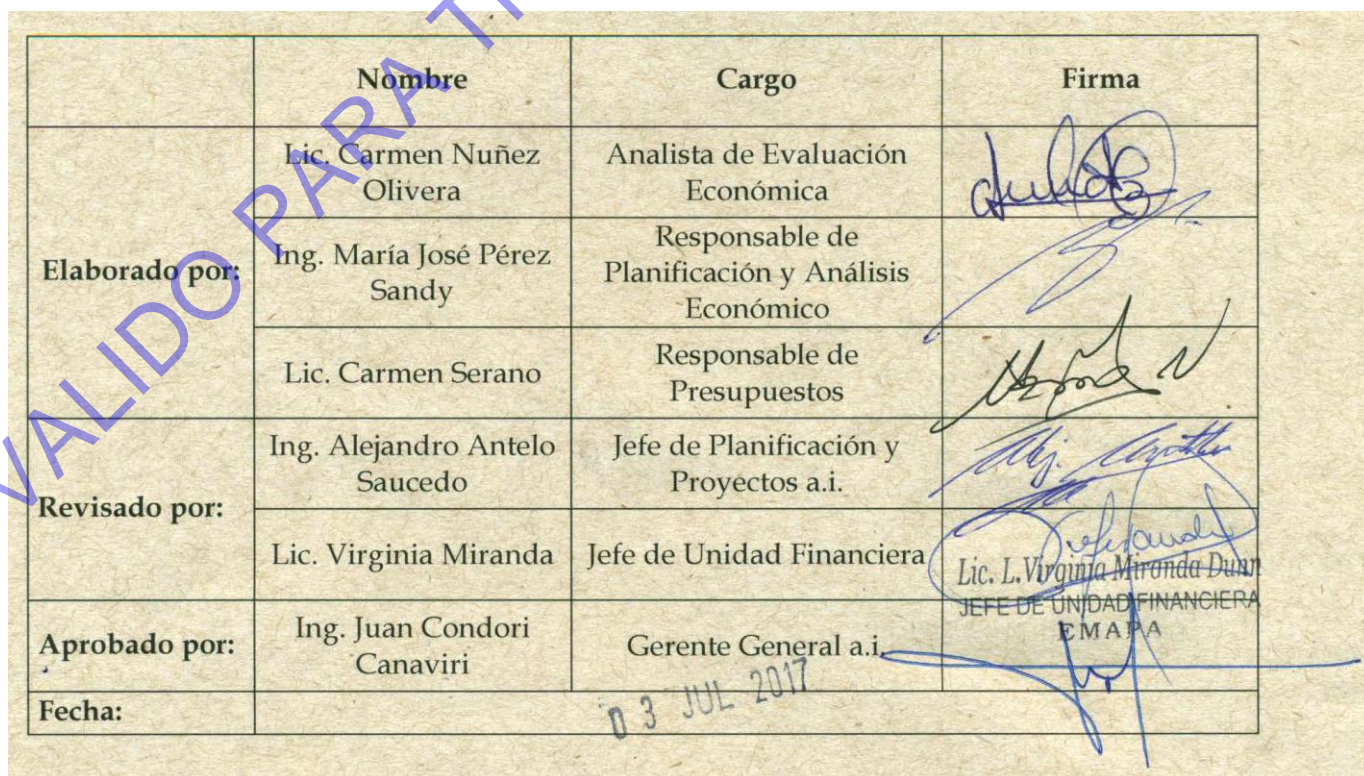 Nombre Cargo Firma
Elaborado por:
Lic. Carmen Nuñez
Olivera
Analista de Evaluación
Económica
Ing. María José Pérez
Sandy
Responsable de
Planificación y Análisis
Económico
Lic. Carmen Serano
Responsable de
Presupuestos
Revisado por:
Ing. Alejandro Antelo
Saucedo
Jefe de Planificación y
Proyectos a.i.
Lic. Virginia Miranda
Jefe de Unidad Financiera
Lic. L. Virginia Miranda Dunn
JEFE DE UNIDAD FINANCIERA
EMAPA
Aprobado por:
Ing. Juan Condori
Canaviri
Gerente General a.i.
Fecha:
03 JUL 2017
VALIDO PARA